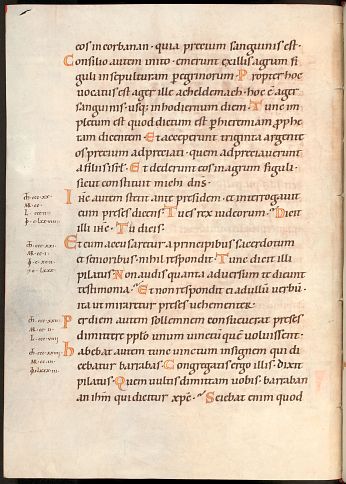 eos in corbanan· quia precium sanguinis est·
Consilio autem inito· emerunt ex illis agrum fi
guli in sepulturam peregrinorum· Propter hoc
uocatus est ager ille acheldemach· hoc ē ager
sanguinis· usq; in hodiernum diem· Tunc im
pletum est quod dictum est p hieremiam prophe
tam dicentem· Et acceperunt triginta argente
os precium adpreciati· quem adpreciauerunt
a filiis isrł· Et dederunt eos in agrum figuli·
sicut constituit michi dn̄s·
Ihc̄ autem stetit ante presidem· et interrogauit
eum preses dicens· Tu es rex iudeorum· Dicit
illi ihc̄· Tu dicis·
Et cum accusaretur a principibus sacerdotum
et senioribus· nihil respondit· Tunc dicit illi
pilatus· Non audis quanta aduersum te dicunt
testimonia· Et non respondit ei ad ullū uerbū·
ita ut miraretur preses uehementer·
Per diem autem sollemnem consueuerat preses
dimittere pplo unum uinctū quē uoluissent·
habebat autem tunc uinctum insignem qui di
cebatur barrabas· Congregatis ergo illis· dixit
pilatus· Quem uultis dimittam uobis· barraban
an ihm̄ qui dicitur xpc̄· Sciebat enim quod